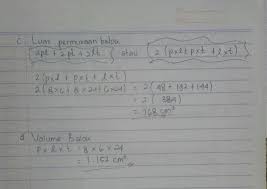 c. Luas permukaan balok
2pl + 2pt + 2lt } atau { 2 (pxl + pxt + lxt)
2(pxl + pxt + lxt)
2(8x6 + 8x24 + 6x24) = 2(48 + 192 + 144)
= 2 (384)
= 768 cm²
d. Volume balok
p x l x t = 8 x 6 x 24
= 1.152 cm³